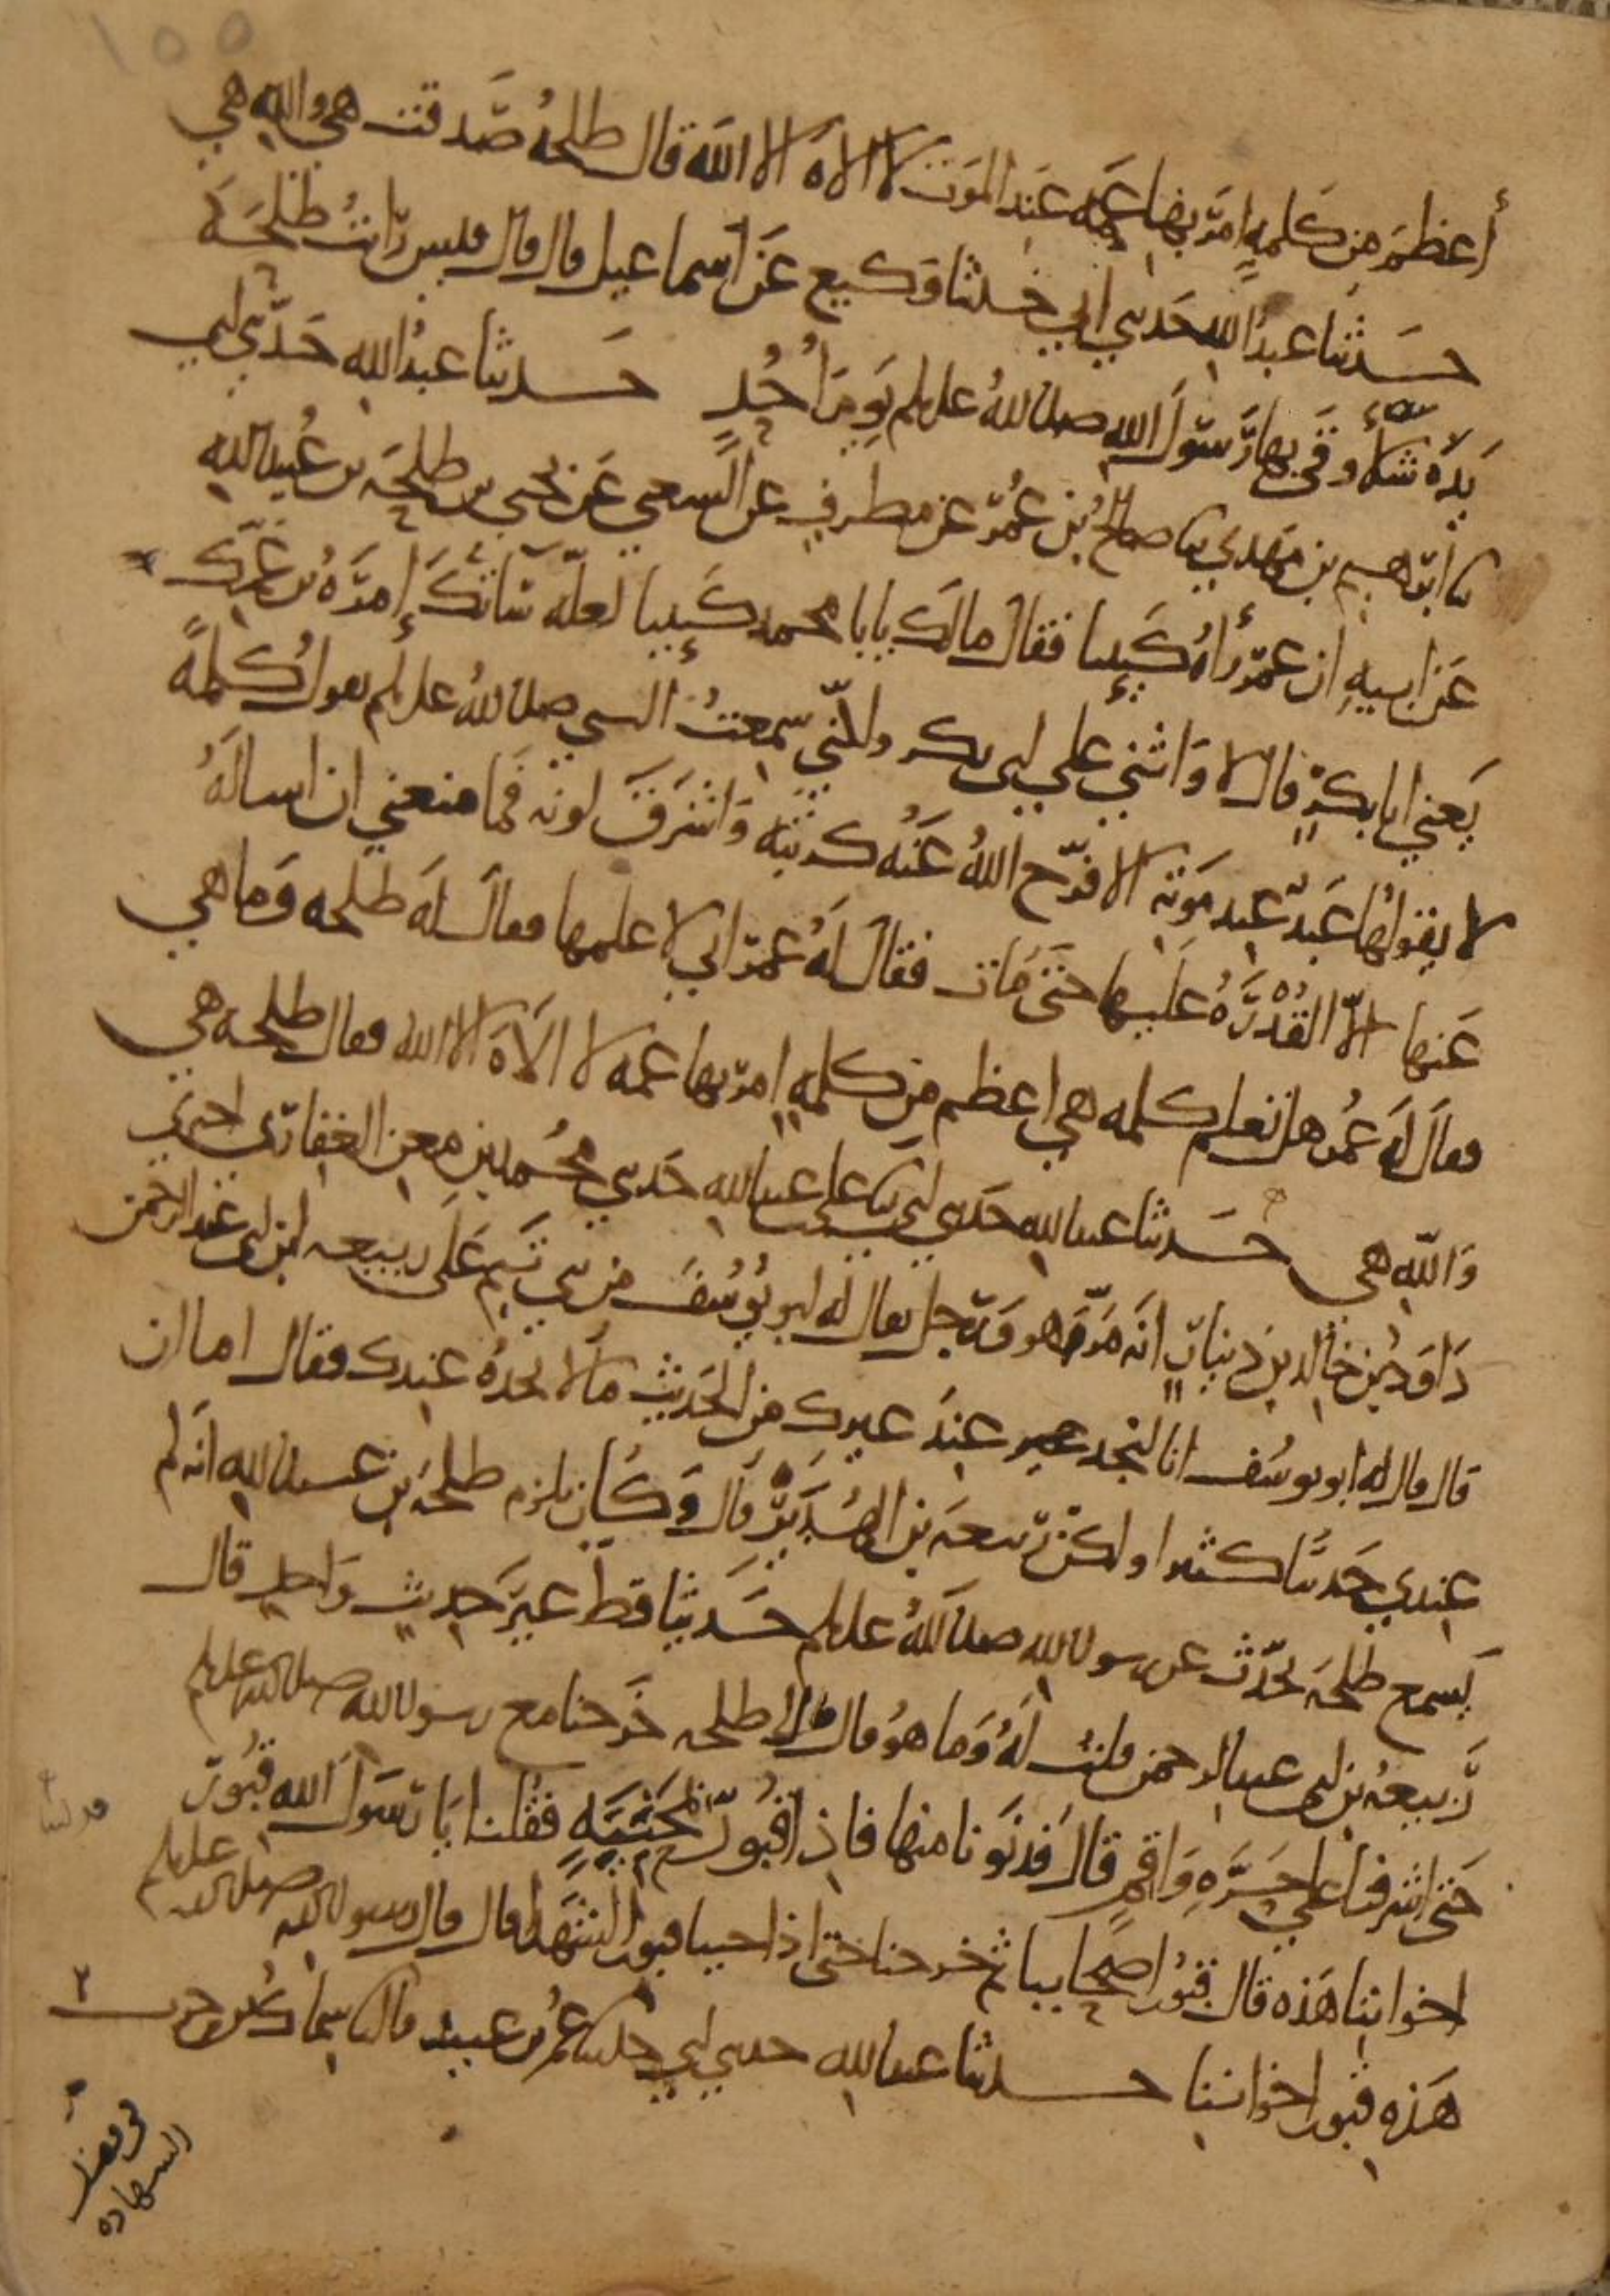 ١٥٥
أعظم من كلمة امر بها عمه عند الموت لا الاه الا الله قال طلحة صدقت هي والله هي
حدثنا عبد الله حدثني ابي حدثنا وكيع عن اسماعيل قال قال قيس رأيت طلحة
يده شلاء وقى بها رسول الله صلى الله عليه وسلم يوم أحد حدثنا عبد الله حدثني ابي
نا ابرهيم بن مهدي نا صالح بن عمر عن مطرف عن الشعبي عن يحيى بن طلحة بن عبيد الله
عن ابيه ان عمر رأه كئيبا فقال مالك يابا محمد كئيبا لعله سائتك إمرة بن عمك
يعني ابا بكر قال لا واثنى على ابي بكر ولكني سمعت النبي صلى الله عليه وسلم يقول كلمة
لا يقولها عبد عند موته الا فرج الله عنه كربته واشرق لونه فما منعني ان اساله
عنها الا القدرة عليها حتى مات فقال له عمر اني لا علمها فقال له طلحة وما هي
فقال له عمر هل تعلم كلمه هي اعظم من كلمة امر بها عمه لا الاه الا الله فقال طلحة هي
والله هي حدثنا عبد الله حدثني ابي نا علي بن عبد الله حدثني محمد بن معن الغفاري اخبرني
داود بن خالد بن دينار انه مر هو ورجل يقال له ابو يوسف من بني تيم على ربيعه ابن ابي عبد الرحمن
قال قال له ابو يوسف انا لنجد عند غيرك من الحديث ما لا نجده عندك فقال اما ان
عندي حديثا كثيرا ولكن ربيعة بن الهدير قال وكان يلزم طلحة بن عبيد الله انه لم
يسمع طلحة يحدث عن رسول الله صلى الله عليه وسلم حديثا قط غير حديث واحد قال
ربيعة بن ابي عبد الرحمن قلت له وما هو قال قال لي طلحة خرجنا مع رسول الله صلى الله عليه وسلم
حتى اشرفنا على حرة واقم قال فدنونا منها فاذا قبور بمحنية فقلنا يا رسول الله قبور
اخواننا هذه قال قبور اصحابنا ثم خرجنا حتى اذا جئنا قبور الشهدا قال قال رسول الله صلى الله عليه وسلم
هذه قبور اخواننا حدثنا عبد الله حدثني ابي حدثنا عمر بن عبيد قال نا سماك بن حرب